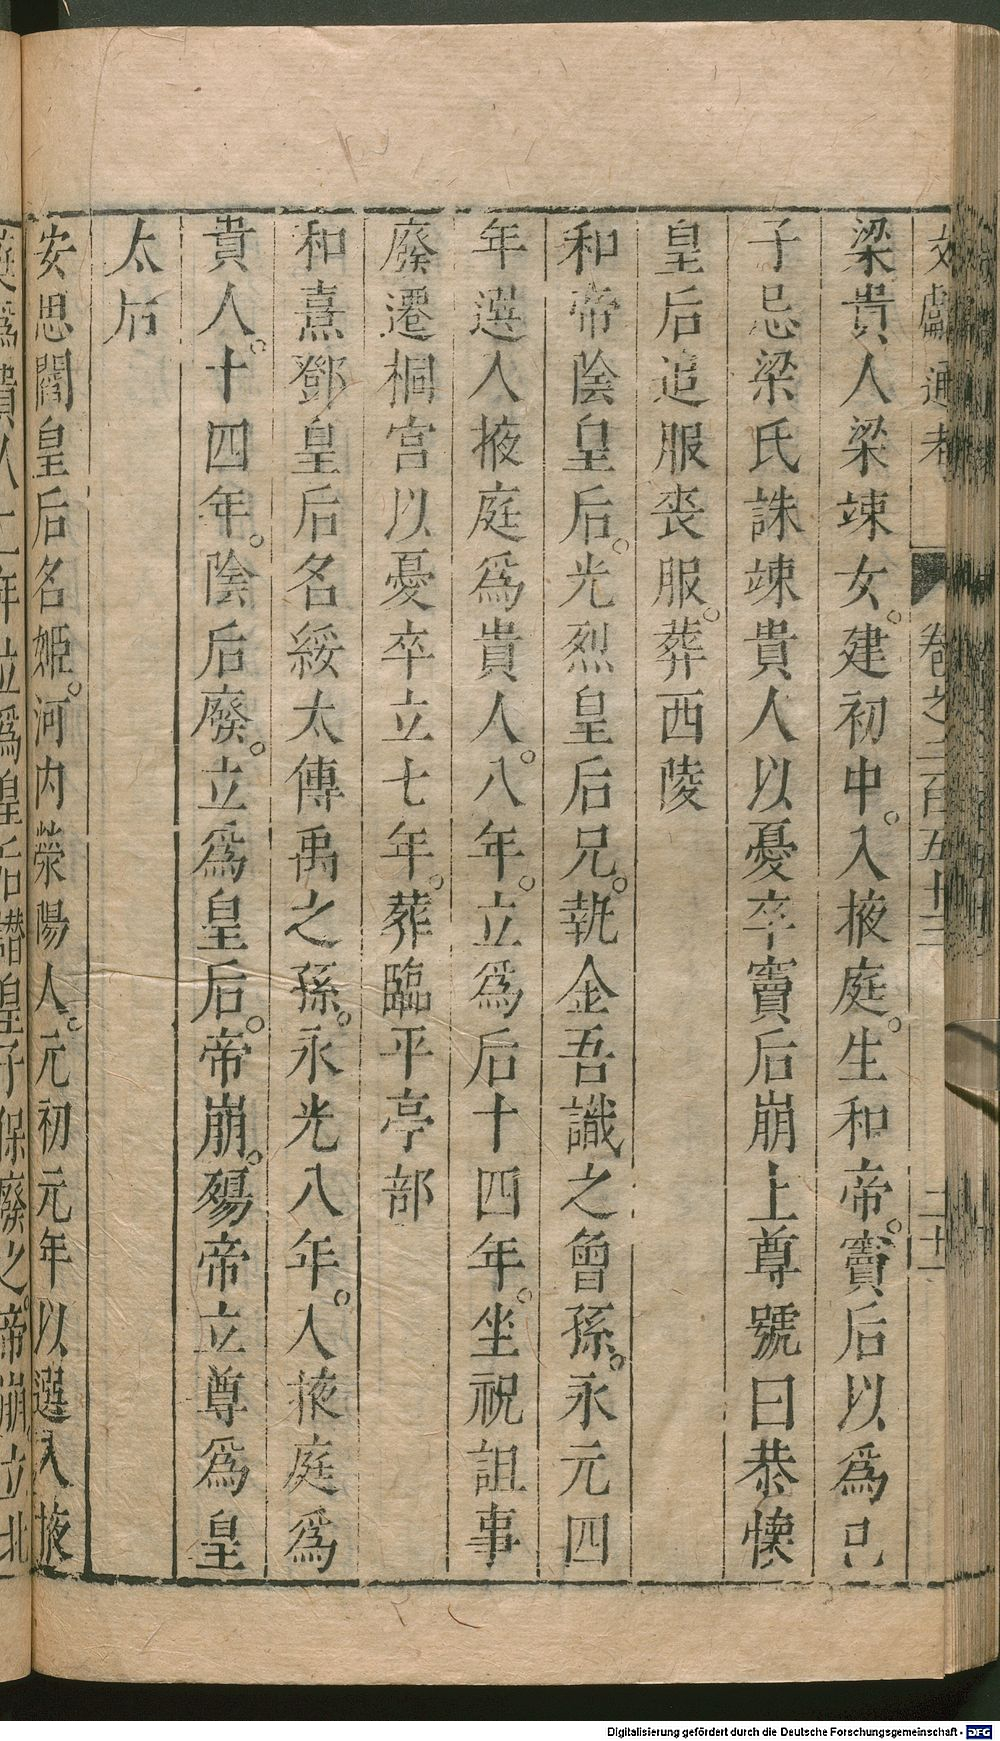 文獻通考 卷之二百五十三 二十一
梁貴人梁竦女。建初中。入掖庭。生和帝。竇后以爲己
子忌梁氏誅竦貴人以憂卒竇后崩上尊號曰恭懷
皇后追服喪服。葬西陵
和帝陰皇后。光烈皇后兄。執金吾識之曾孫。永元四
年選入掖庭爲貴人。八年。立爲后十四年。坐祝詛事
廢遷桐宮以憂卒立七年。葬臨平亭部
和熹鄧皇后名綏太傅禹之孫。永光八年。入掖庭爲
貴人。十四年。陰后廢。立爲皇后。帝崩。殤帝立尊爲皇
太后
安思閻皇后名姬。河内滎陽人。元初元年以選入掖
庭爲貴人二年立爲皇后譖皇子保廢之。帝崩立北
Digitalisierung gefördert durch die Deutsche Forschungsgemeinschaft - DFG